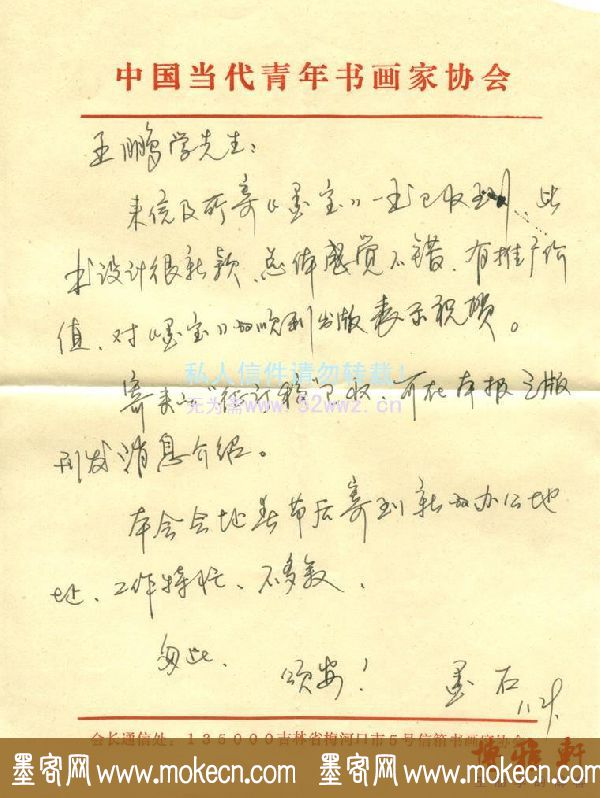 中国当代青年书画家协会
王鹏学先生:
来信及所寄《墨宝》一书已收到,此
书设计很新颖,总体感觉不错,有推广价
值,对《墨宝》的顺利出版表示祝贺。
私人信件请勿转载!
寄来的 稿已收,可在本报 版
www.52wwz.cn
刊发消息介绍。
本会会址春节后 到新的办公地
址,工作特忙,不多叙,
匆此,
颂安!
墨石
会长通信处:135000吉林省梅河口市5号信箱书画家协会
博雅轩
墨客网 www.mokecn.com 墨客网 www.mokecn.com